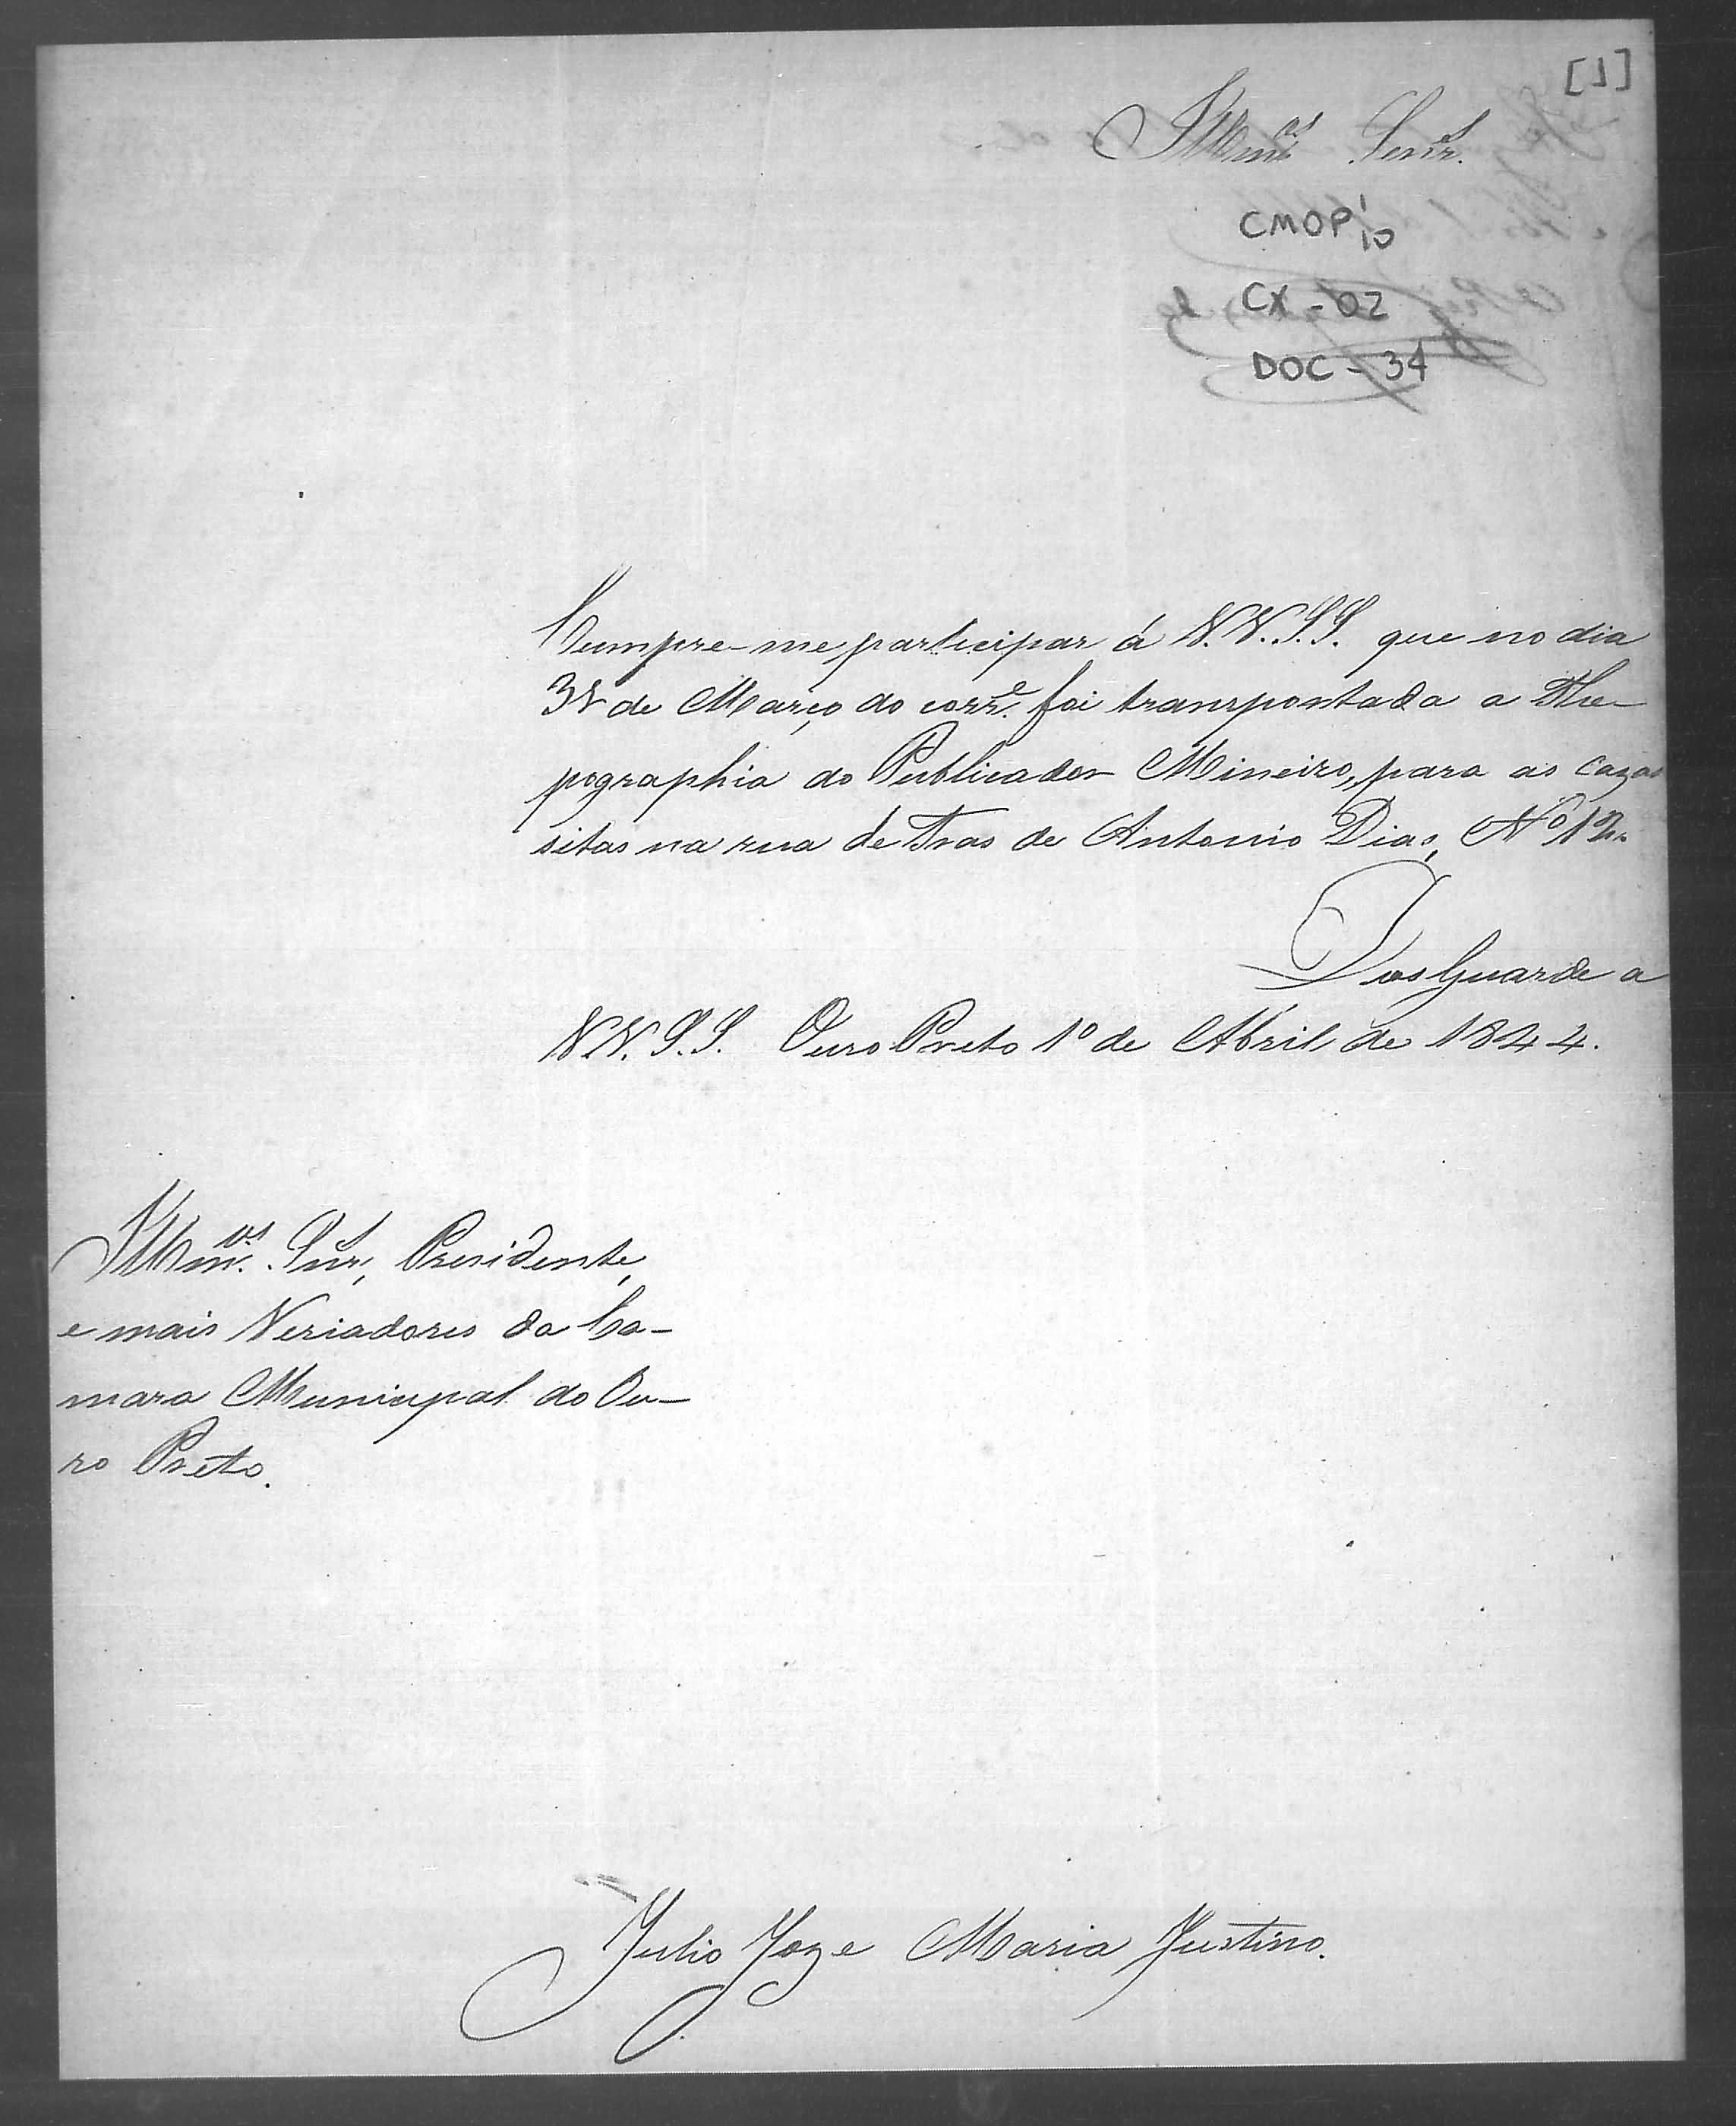 [1]
Illm.os Senr.es
CMOP 1/10
CX - 02
DOC - 34
Cumpre-me participar á V.V.S.S. que no dia
31 de Março do corr.e foi transportada a Thi-
pographia do Publicador Mineiro, para as cazas
sitas na rua de Tras de Antonio Dias, Nº 12.
Deos Guarde a
V.V.S.S. Ouro Preto 1º de Abril de 1844.
Illm.os Snr.es Presidente,
e mais Veriadores da Ca-
mara Municipal do Ou-
ro Preto.
Julio Joze Maria Justino.